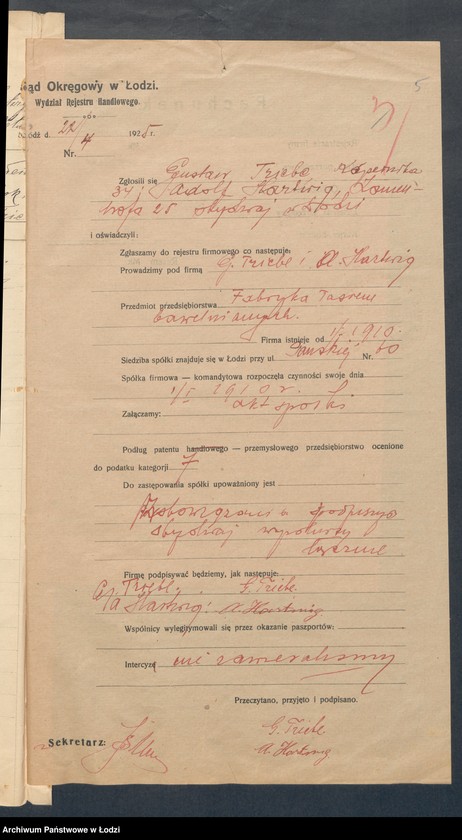 ąd Okręgowy w Łodzi.
Wydział Rejestru Handlowego.
dź d. 22/4 1925 r.
Nr.
5
Zgłosili się Gustaw Triebe Kopernika
34 i Adolf Hartwig, Kamien-
na 25 obydwaj w Łodzi
i oświadczyli:
Zgłaszamy do rejestru firmowego co następuje:
Prowadzimy pod firmą G. Triebe i A. Hartwig
Przedmiot przedsiębiorstwa Fabryka Taśm
bawełnianych.
Firma istnieje od 1/I 1910.
Siedziba spółki znajduje się w Łodzi przy ul. Gdańskiej Nr. 60
Spółka firmowa — komandytowa rozpoczęła czynności swoje dnia
1/I 1910 r.
Załączamy: akt spółki
Podług patentu handlowego — przemysłowego przedsiębiorstwo ocenione
do podatku kategorji 7
Do zastępowania spółki upoważniony jest
Zobowiązania podpisują
obydwaj wspólnicy
łącznie
Firmę podpisywać będziemy, jak następuje:
G. Triebe. G. Triebe.
A. Hartwig: A. Hartwig
Wspólnicy wylegitymowali się przez okazanie paszportów:
Intercyzę nie zawieraliśmy
Przeczytano, przyjęto i podpisano.
Sekretarz:
G. Triebe
A. Hartwig
Archiwum Państwowe w Łodzi